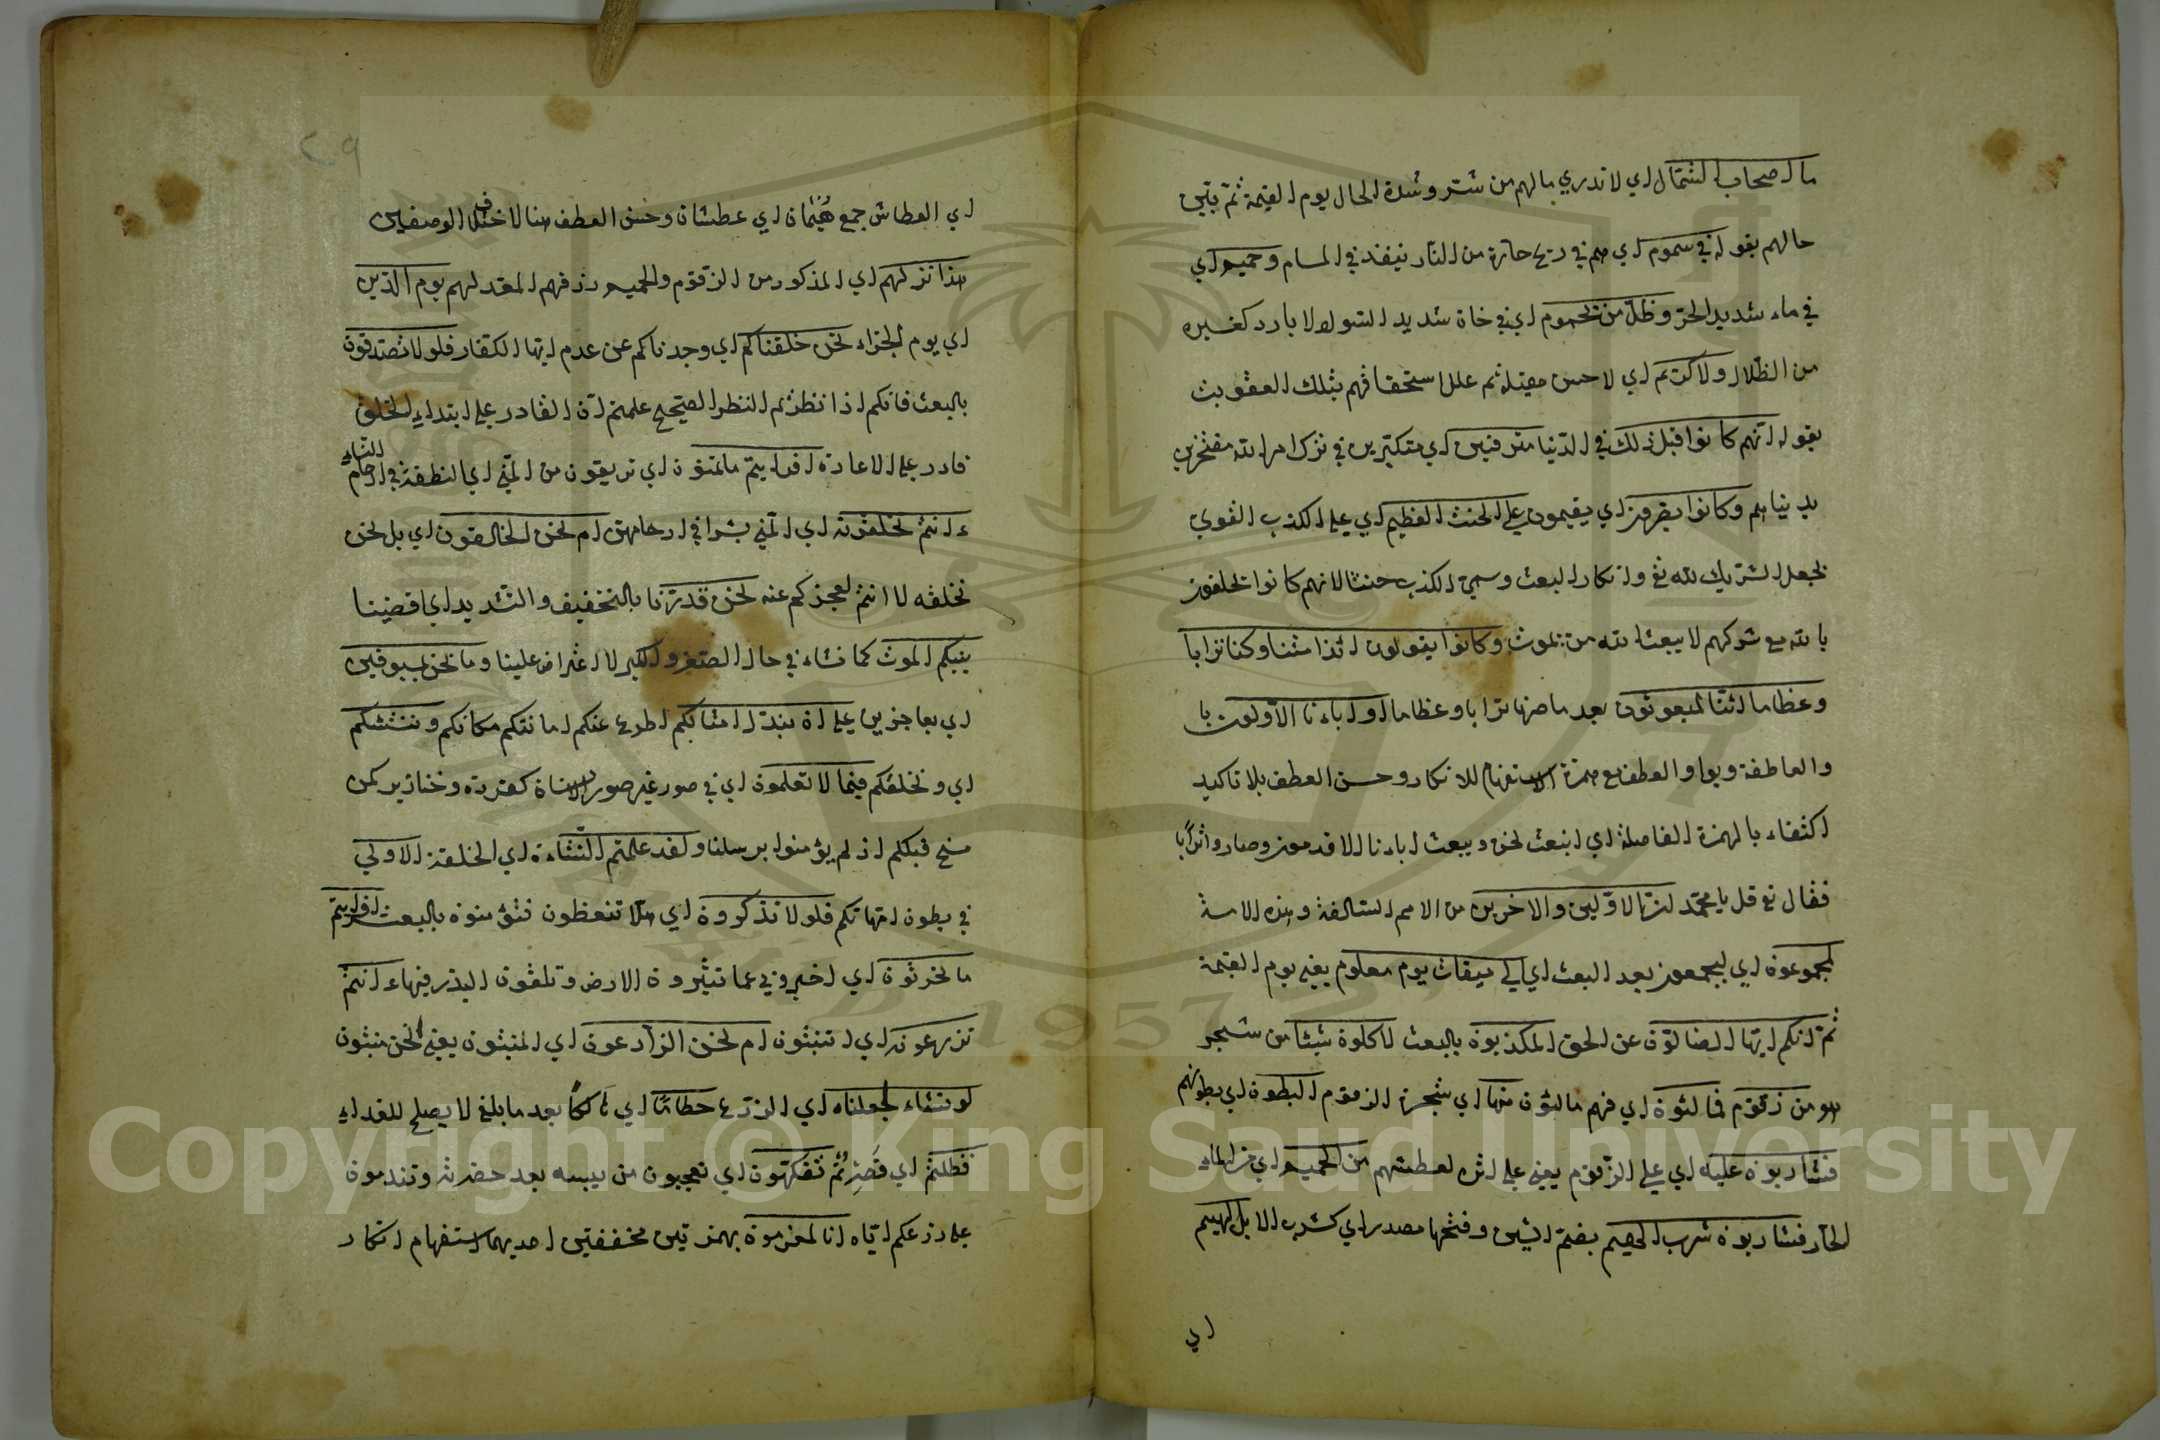 ما اصحاب الشمال اي لا تدري بالهم من شتر وشدة الحال يوم القيمة ثم بيّن
حالهم بقوله في سموم اي هم في ريح حارة من النار ينفذ في المسام وحميم اي
في ماء شديد الحرّ وظلّ من يحموم اي في خان شديد السواد لا بارد كغيره
من الظلال ولا كريم اي لا حسن مقيله ثم علل استحقاقهم بتلك العقوبة
بقوله انهم كانوا قبل ذلك في الدنيا مترفين اي متكبرين في ترك امر الله مفتخرين
بدنياهم وكانوا يصرون اي يقيمون على الحنث العظيم اي على الكذب القوي
بجعل الشريك لله تع وانكار البعث وسمي الكذب حنثا لانهم كانوا يحلفون
بالله مع شركهم لا يبعث الله من يموت وكانوا يقولون ائذا متنا وكنا ترابا
وعظاما ائنّا لمبعوثون بعد ما صرنا ترابا وعظاما او اباءنا الاولون با
والعاطفة وبواو العطف مع همزة الاستفهام للانكار وحسن العطف بلا تاكيد
اكتفاء بالهمزة الفاصلة اي انبعث نحن ويبعث اباءنا الاقدمون وصاروا ترابًا
فقال تع قل يا محمّد ان الاوّلين والاخرين من الامم السالفة وهذه الامة
لمجموعون اي ليجمعون بعد البعث اي الى ميقات يوم معلوم يعني يوم القيمة
ثمّ انكم ايّها الضالّون عن الحق المكذبون بالبعث لاكلون شيئا من شجر
هو من زقّوم فمالئون اي فهم مالئون منها اي شجرة الزقوم البطون اي بطونهم
فشاربون عليه اي على الزّقوم يعني على اثره لعطشهم من الحميم اي من الماء
الحار فشاربون شرب الهيم بضمّ الشين وفتحها مصدر اي كشرب الابل الهيم
اي
٢٩
اي العطاش جمع هَيْمَان اي عطشان وحسن العطف هنا لاختلاف الوصفين
هذا نزلهم اي المذكور من الزّقوم والحميم رزقهم المعد لهم يوم الدّين
اي يوم الجزاء نحن خلقناكم اي وجدناكم عن عدم ايّها الكفّار فلولا تصدقون
بالبعث فانكم اذا نظرتم النظر الصحيح علمتم انّ القادر على ابتداء الخلق
قادر على الاعادة افرايتم ما تمنون اي تريقون من المنّي اي النطفة في ارحام النساء
ء انتم تخلقونه اي المني بشرا في ارحامهنّ ام نحن الخالقون اي بل نحن
نخلقه لا انتم لعجزكم عنه نحن قدّرنا بالتخفيف والتشديد اي قضينا
بينكم الموت كما نشاء في حال الصغر والكبر لا اعتراض علينا وما نحن بمسبوقين
اي بعاجزين على ان نبدّل امثالكم اطوع عنكم امانتكم مكانكم وننشئكم
اي ونخلقكم فيما لا تعلمون اي في صور غير صور الانسان كقردة وخنازير كمن
مسخ قبلكم اذ لم يؤمنوا برسلنا ولقد علمتم النّشاءة اي الخلقة الاولى
في بطون امّهاتكم فلولا تذكرون اي هلّا تتعظون فتؤمنون بالبعث افرايتم
ما تحرثون اي اخبروني عما تثيرون الارض وتلقون البذر فيها ء انتم
تزرعونه اي تنبتون ام نحن الزّارعون اي المنبتون يعني نحن منبتون
لو نشاء لجعلناه اي الزرع حطامًا اي بعد ما بلغ لا يصلح للغداء
فظلتم اي فَصِرْتُمْ تفكهون اي تعجبون من يبسه بعد خضرته وتندمون
على زرعكم ايّاه انا لمغرمون بهمزتين مخففتين احديهما استفهام انكار
Copyright © King Saud University
1957